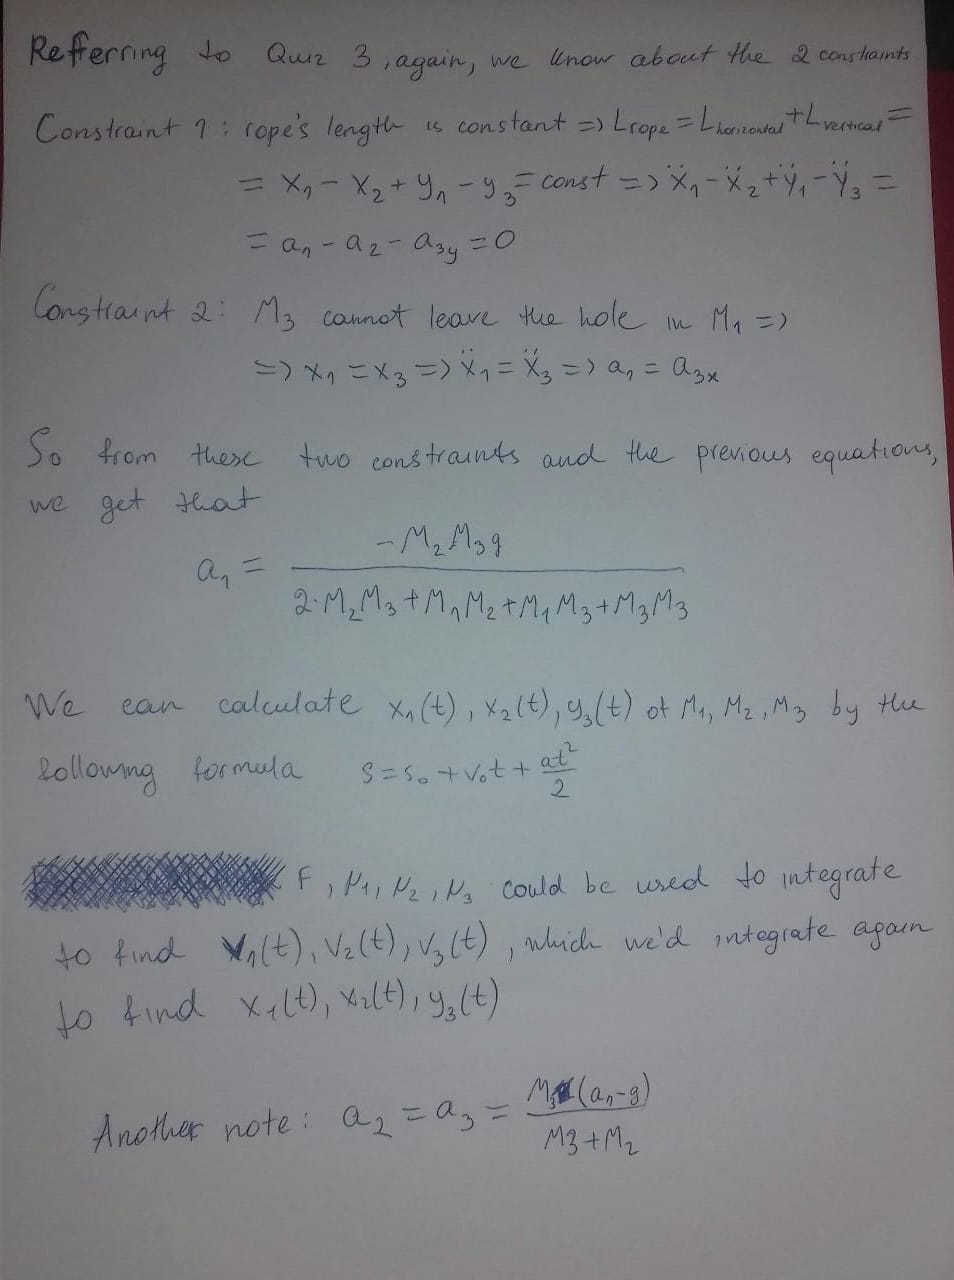 Refferring to Quiz 3, again, we know about the 2 constraints
Constraint 1: rope's length is constant => L_rope = L_horizontal + L_vertical =
= x₁ - x₂ + y₁ - y₃ = const => ẍ₁ - ẍ₂ + ÿ₁ - ÿ₃ =
= a₁ - a₂ - a₃y = 0
Constraint 2: M₃ cannot leave the hole in M₁ =>
=> x₁ = x₃ => ẍ₁ = ẍ₃ => a₁ = a₃x
So from these two constraints and the previous equations,
we get that
a₁ = -M₂M₃g / (2·M₂M₃ + M₁M₂ + M₁M₃ + M₃M₃)
We can calculate x₁(t), x₂(t), y₃(t) of M₁, M₂, M₃ by the
following formula s = s₀ + v₀t + at²/2
F, M₁, M₂, M₃ could be used to integrate
to find v₁(t), v₂(t), v₃(t), which we'd integrate again
to find x₁(t), x₂(t), y₃(t)
Another note: a₂ = a₃ = M₃(a₁-g) / (M3+M₂)